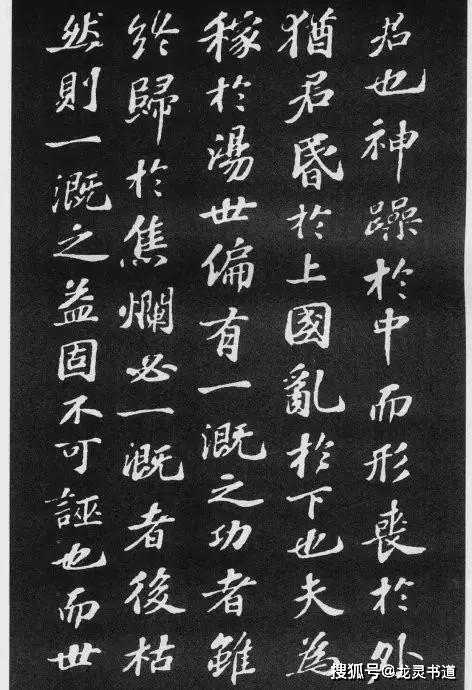 君也神躁於中而形喪於外
猶君昏於上國亂於下也夫為
稼於湯世偏有一溉之功者雖
終歸於焦爛必一溉者後枯
然則一溉之益固不可誣也而世
搜狐号@龙灵书道